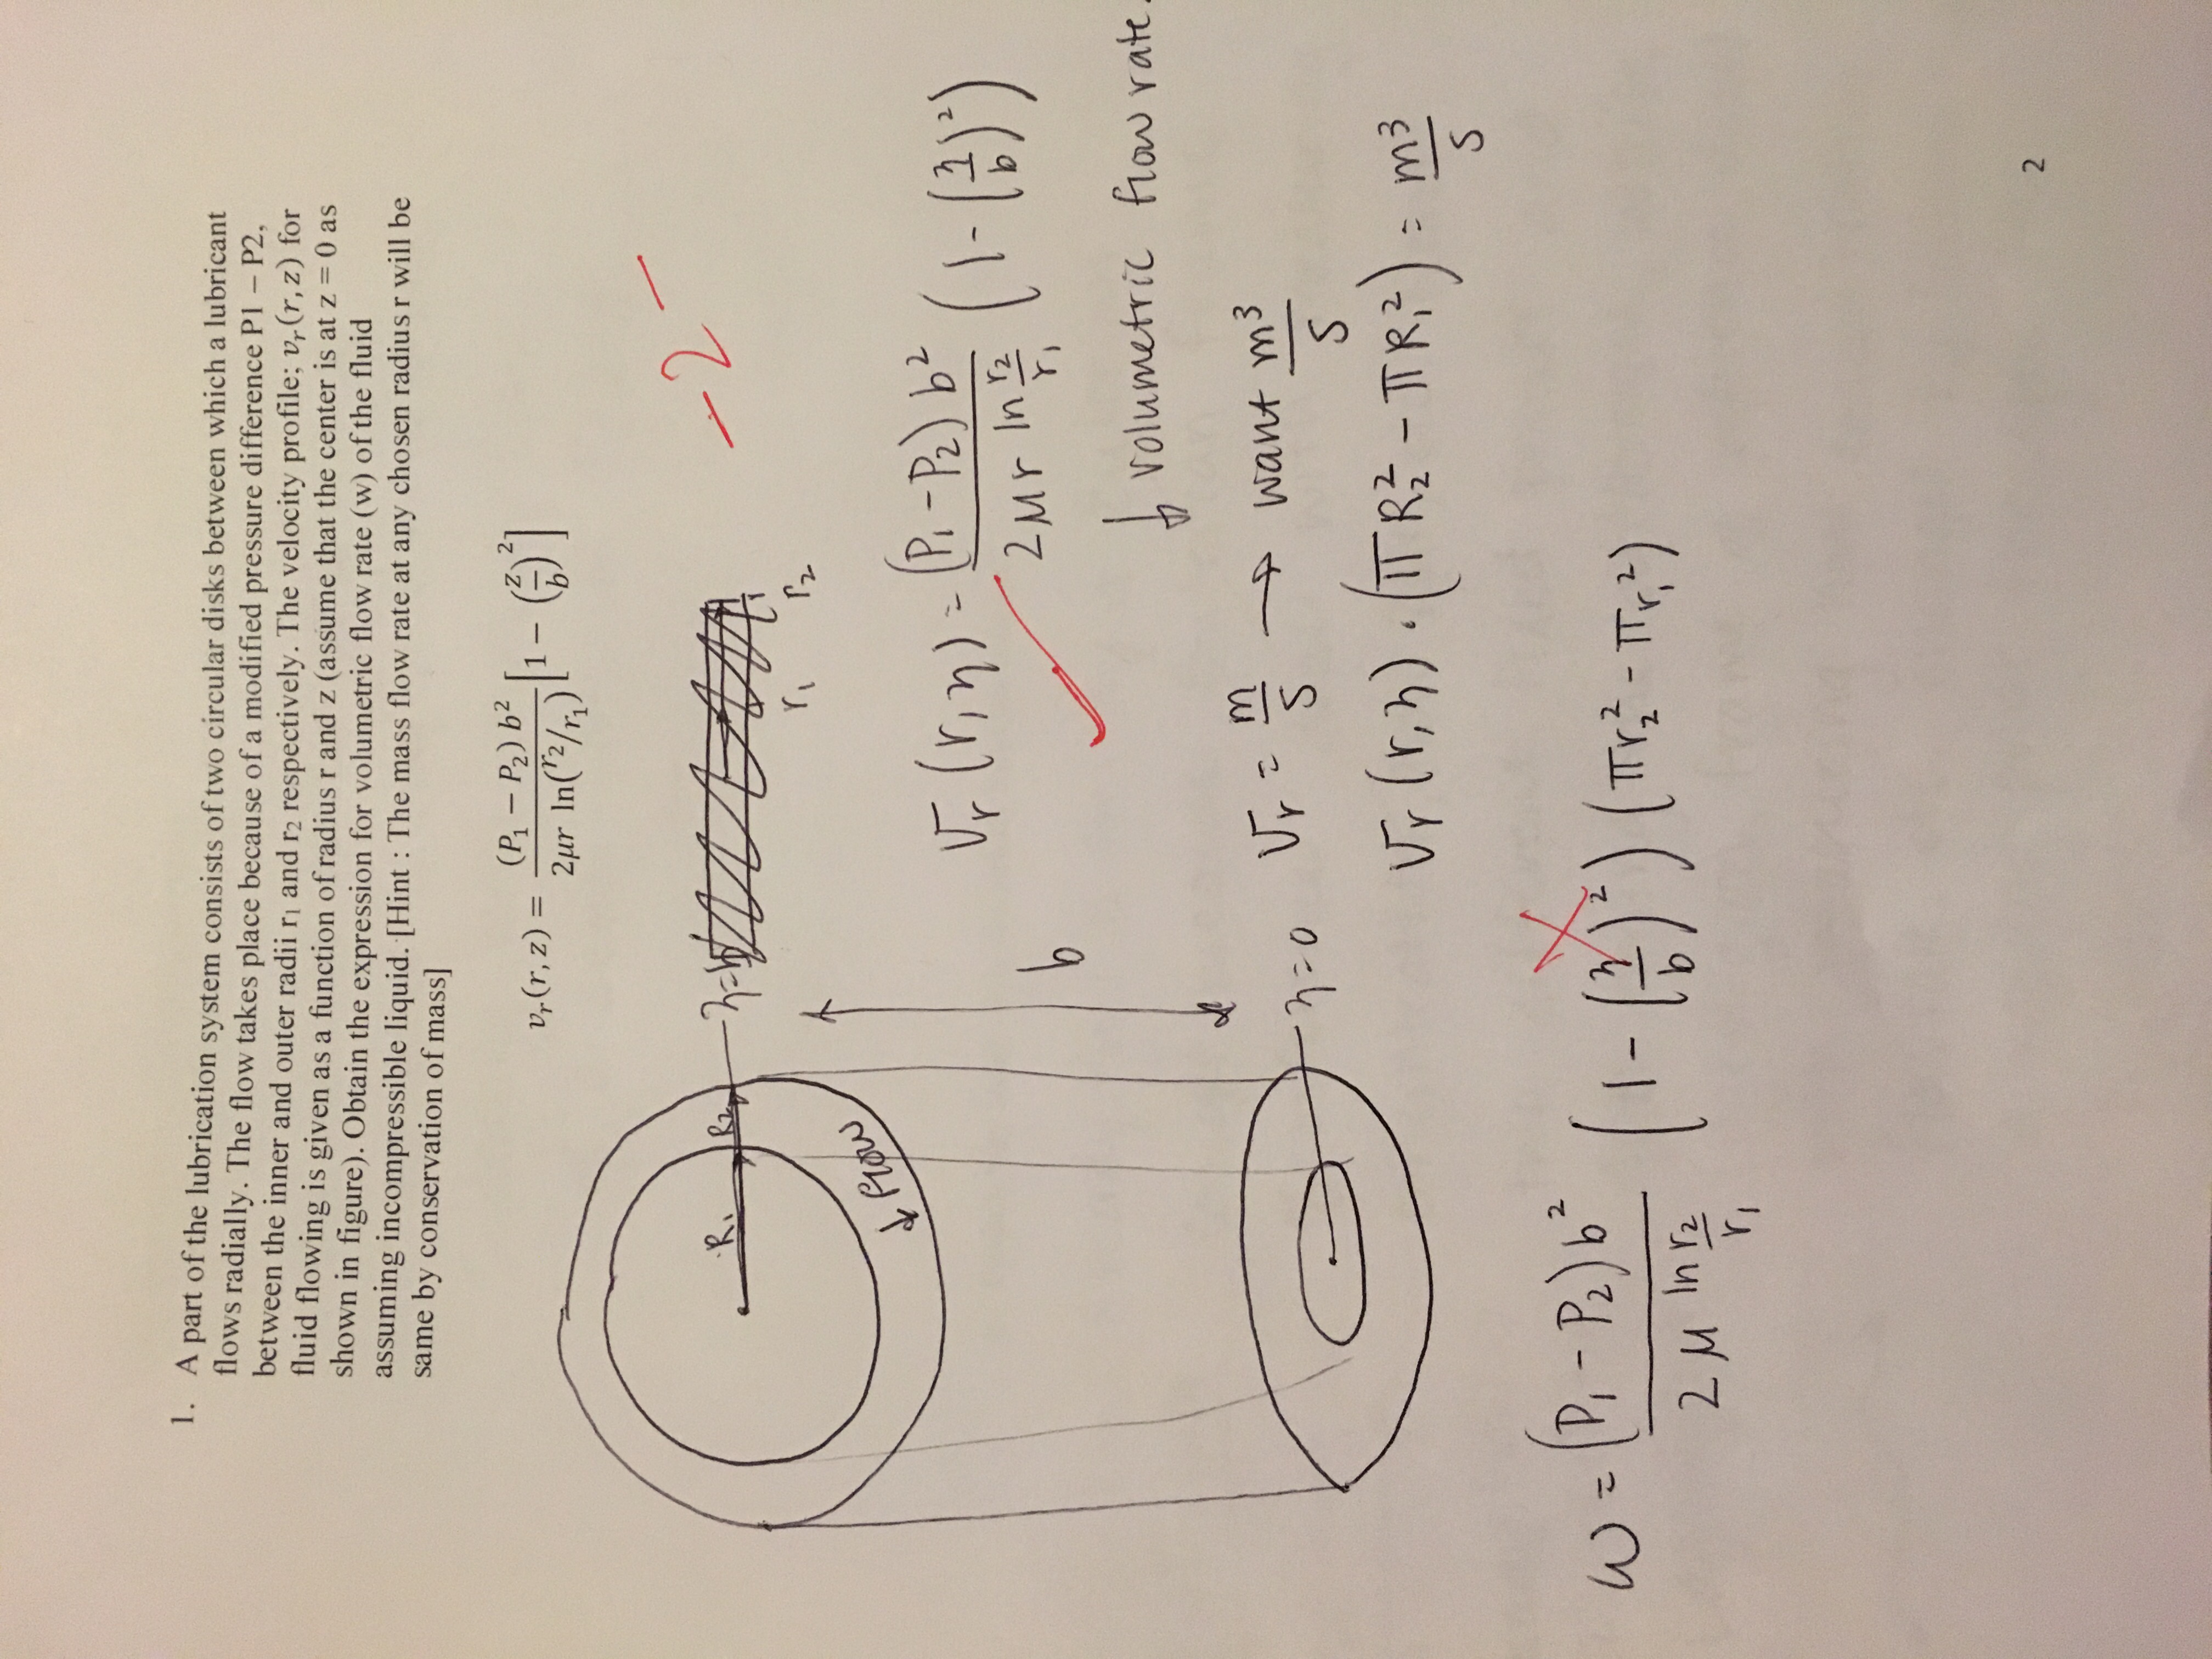 1. A part of the lubrication system consists of two circular disks between which a lubricant
flows radially. The flow takes place because of a modified pressure difference P1 – P2,
between the inner and outer radii r₁ and r₂ respectively. The velocity profile; vᵣ(r, z) for
fluid flowing is given as a function of radius r and z (assume that the center is at z = 0 as
shown in figure). Obtain the expression for volumetric flow rate (w) of the fluid
assuming incompressible liquid. [Hint : The mass flow rate at any chosen radius r will be
same by conservation of mass]
vᵣ(r, z) = (P₁ − P₂) b² / 2μr ln(r₂/r₁) [1 − (z/b)²]
-2
R₁ R₂ z=b
r₁ r₂
↓ Flow
vᵣ (r, z) = (P₁ - P₂) b² / 2μr ln r₂/r₁ (1 - (z/b)²)
b
↓ volumetric flow rate.
vᵣ = m/s → want m³/s
z=0
vᵣ (r, z) · (πR₂² - πR₁²) = m³/s
ω = (P₁ - P₂) b² / 2μ ln r₂/r₁ (1 - (z/b)²) (πr₂² - πr₁²)
2